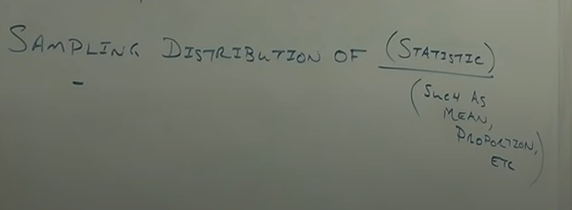 SAMPLING DISTRIBUTION OF (STATISTIC)
-
(SUCH AS
MEAN,
PROPORTION,
ETC)